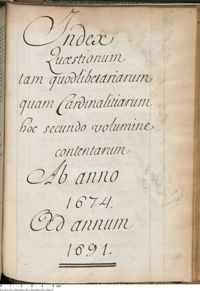 Index
Quæstionum
tam quodlibetariarum
quam Cardinalitiarum
hoc secundo volumine
contentarum
Ab anno
1674.
Ad annum
1691.